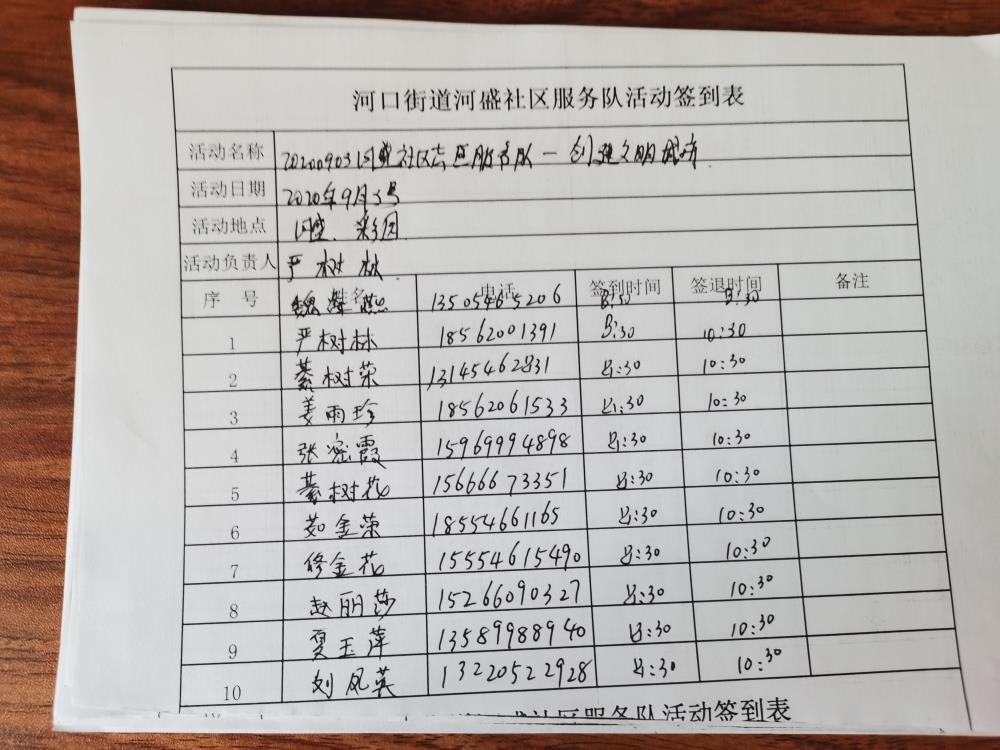 河口街道河盛社区服务队活动签到表
活动名称 20200903河盛社区志愿服务队一创建文明城市
活动日期 2020年9月3号
活动地点 河盛、彩园
活动负责人 严树林
序号 姓名 电话 签到时间 签退时间 备注
魏 燕 13505465206 8:30
1 严树林 18562001391 8:30 10:30
2 綦树荣 13145462831 8:30 10:30
3 姜雨珍 18562061533 8:30 10:30
4 张密霞 15969994898 8:30 10:30
5 綦树花 15666673351 8:30 10:30
6 茹金荣 18554661165 8:30 10:30
7 修金花 15554615490 8:30 10:30
8 赵丽莎 15266090327 8:30 10:30
9 夏玉萍 13589988940 8:30 10:30
10 刘凤英 13220522928 8:30 10:30
盛社区服务队活动签到表